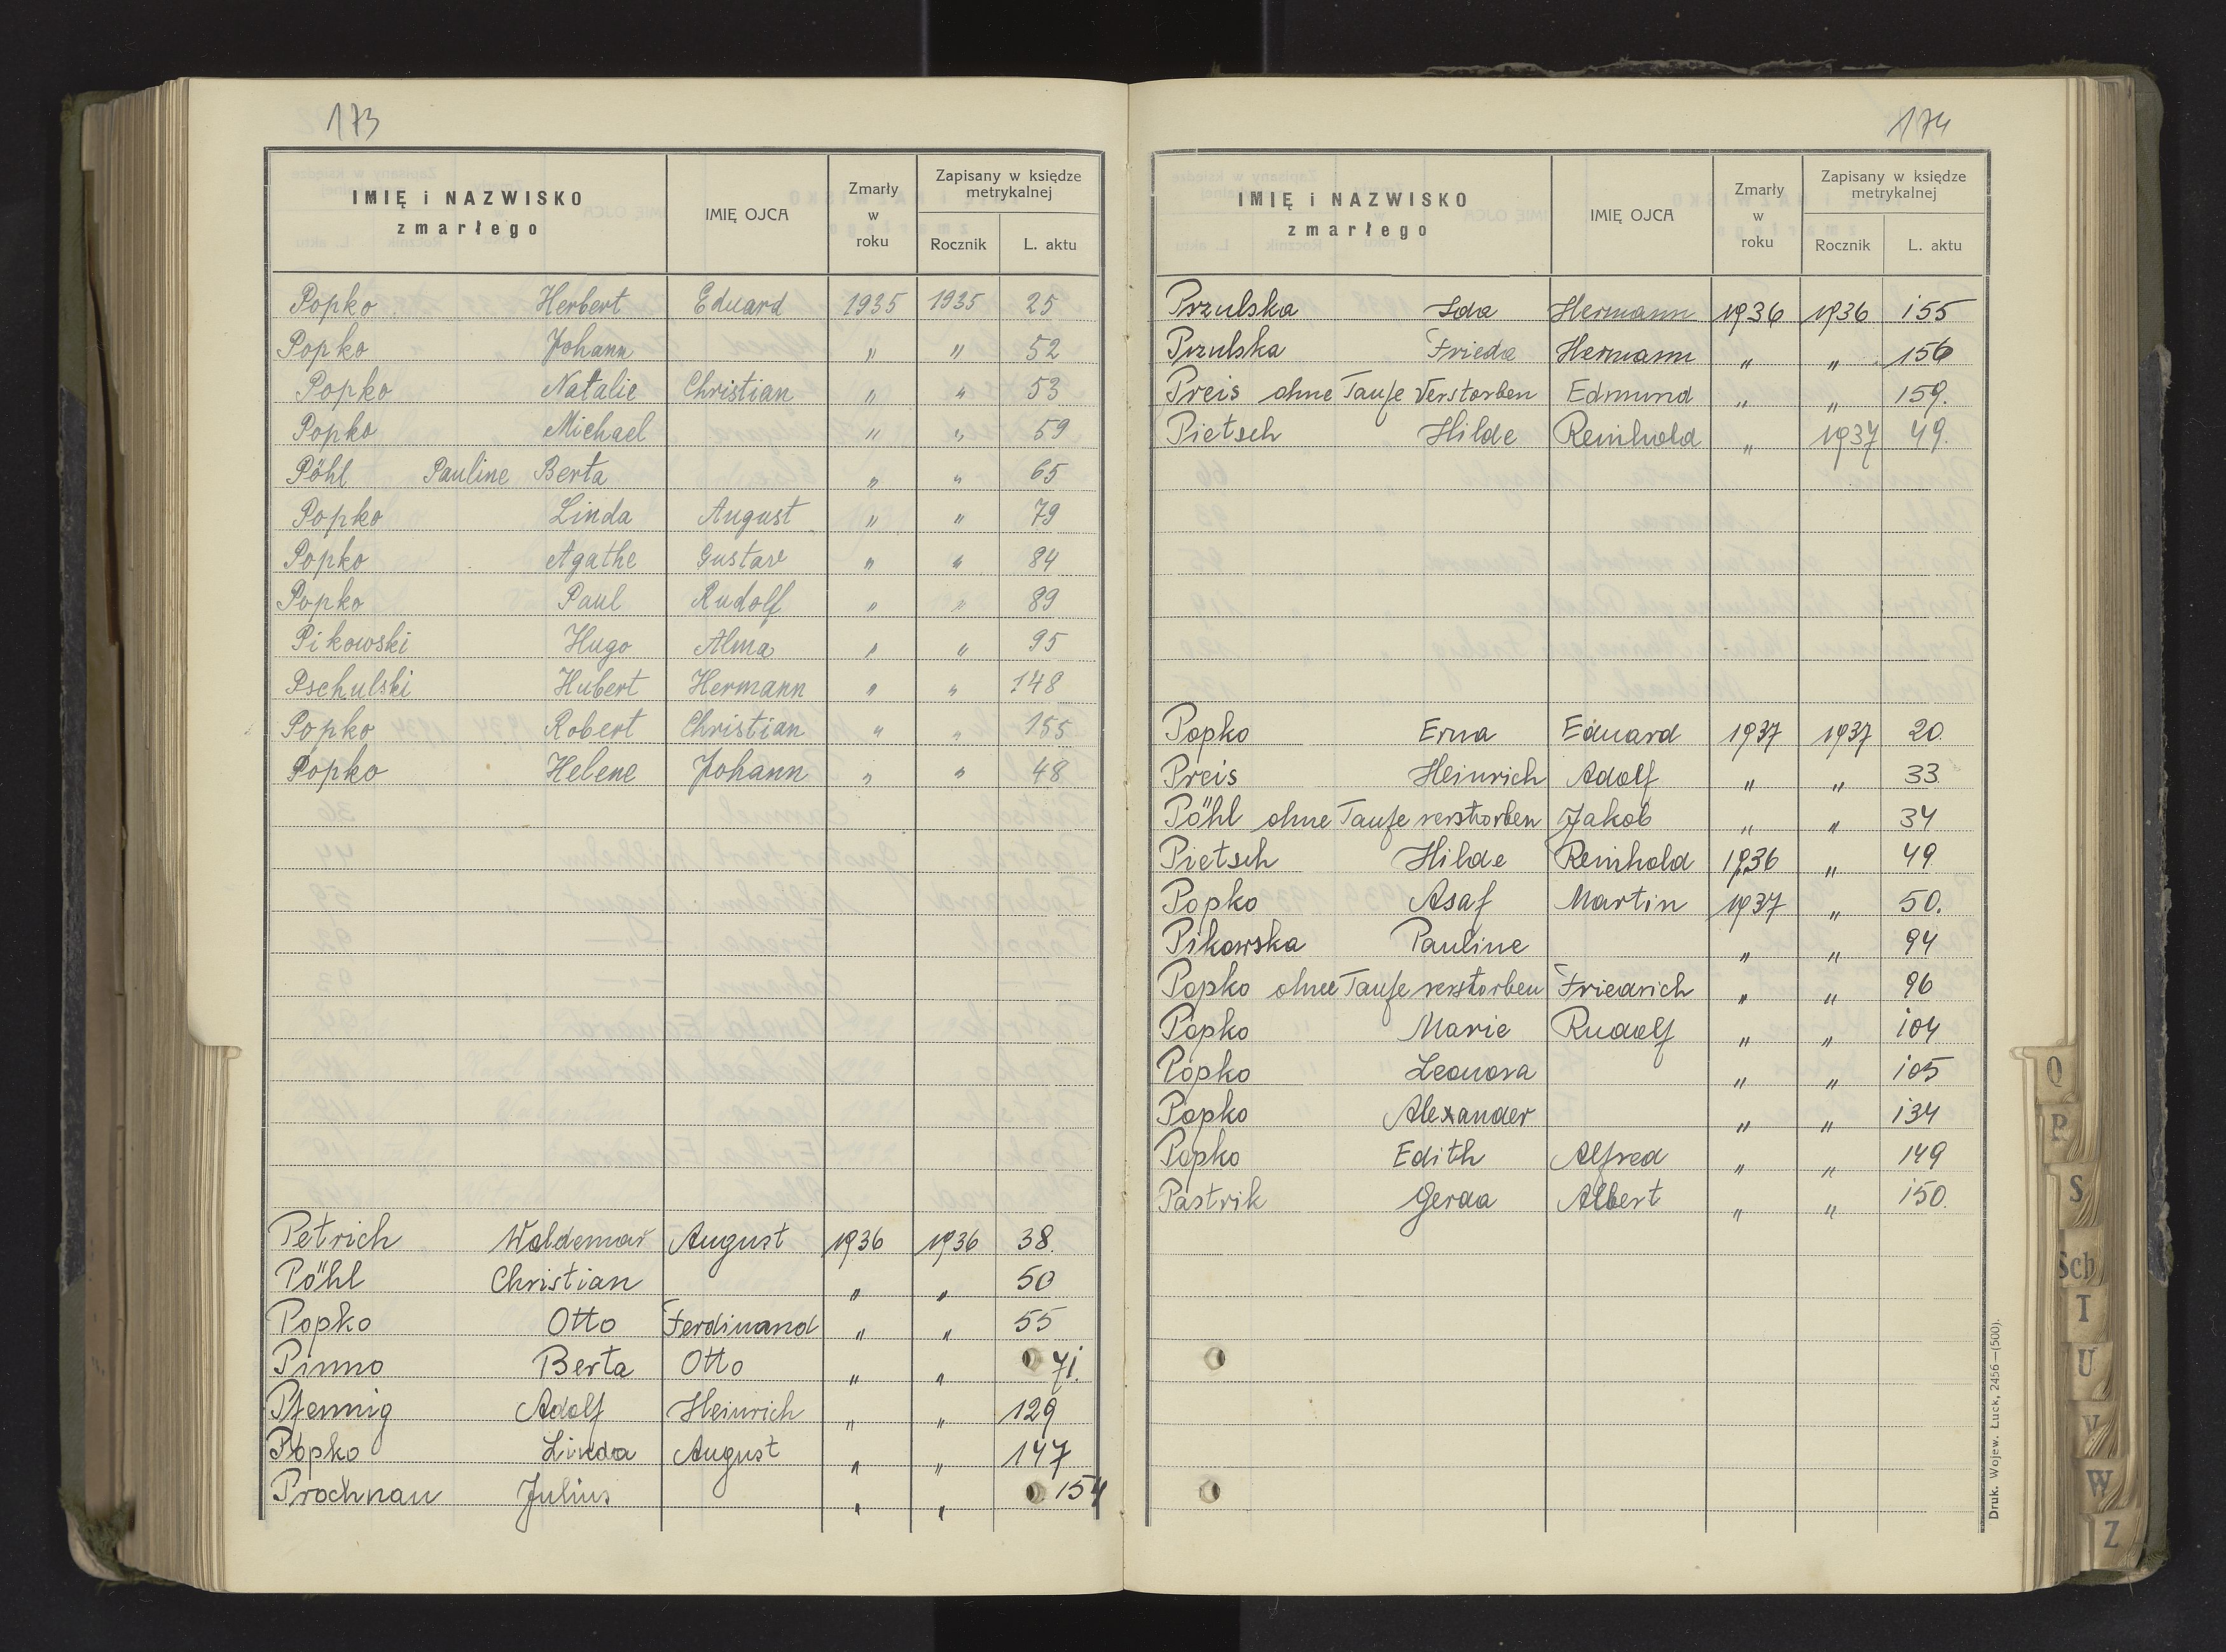 173
IMIĘ i NAZWISKO zmarłego IMIĘ OJCA Zmarły w roku Zapisany w księdze metrykalnej Rocznik L. aktu
Popko Herbert Eduard 1935 1935 25
Popko Johann " " 52
Popko Natalie Christian " " 53
Popko Michael " " 59
Pöhl Pauline Berta " " 65
Popko Linda August " " 79
Popko Agathe Gustav " " 84
Popko Paul Rudolf " " 89
Pikowski Hugo Alma " " 95
Pschulski Hubert Hermann " " 148
Popko Robert Christian " " 155
Popko Helene Johann " " 48
Petrich Woldemar August 1936 1936 38.
Pöhl Christian " " 50
Popko Otto Ferdinand " " 55
Pinno Berta Otto " " 71.
Pfennig Adolf Heinrich " " 129
Popko Linda August " " 147
Prochnau Julius " " 154
174
IMIĘ i NAZWISKO zmarłego IMIĘ OJCA Zmarły w roku Zapisany w księdze metrykalnej Rocznik L. aktu
Przulska Ida Hermann 1936 1936 155
Przulska Frieda Hermann " " 156
Preis ohne Taufe Verstorben Edmund " " 159.
Pietsch Hilde Reinhold " 1937 49.
Popko Erna Eduard 1937 1937 20.
Preis Heinrich Adolf " " 33
Pöhl ohne Taufe verstorben Jakob " " 34
Pietsch Hilde Reinhold 1936 " 49
Popko Asaf Martin 1937 " 50.
Pikowska Pauline " " 94
Popko ohne Taufe verstorben Friedrich " " 96
Popko Marie Rudolf " " 104
Popko Leonora " " 105
Popko Alexander " " 134
Popko Edith Alfred " " 149
Pastrik Gerda Albert " " 150.
Druk. Wojew. Łuck, 2456—(500).
Q
R
S
Sch
T
U
V
W
Z